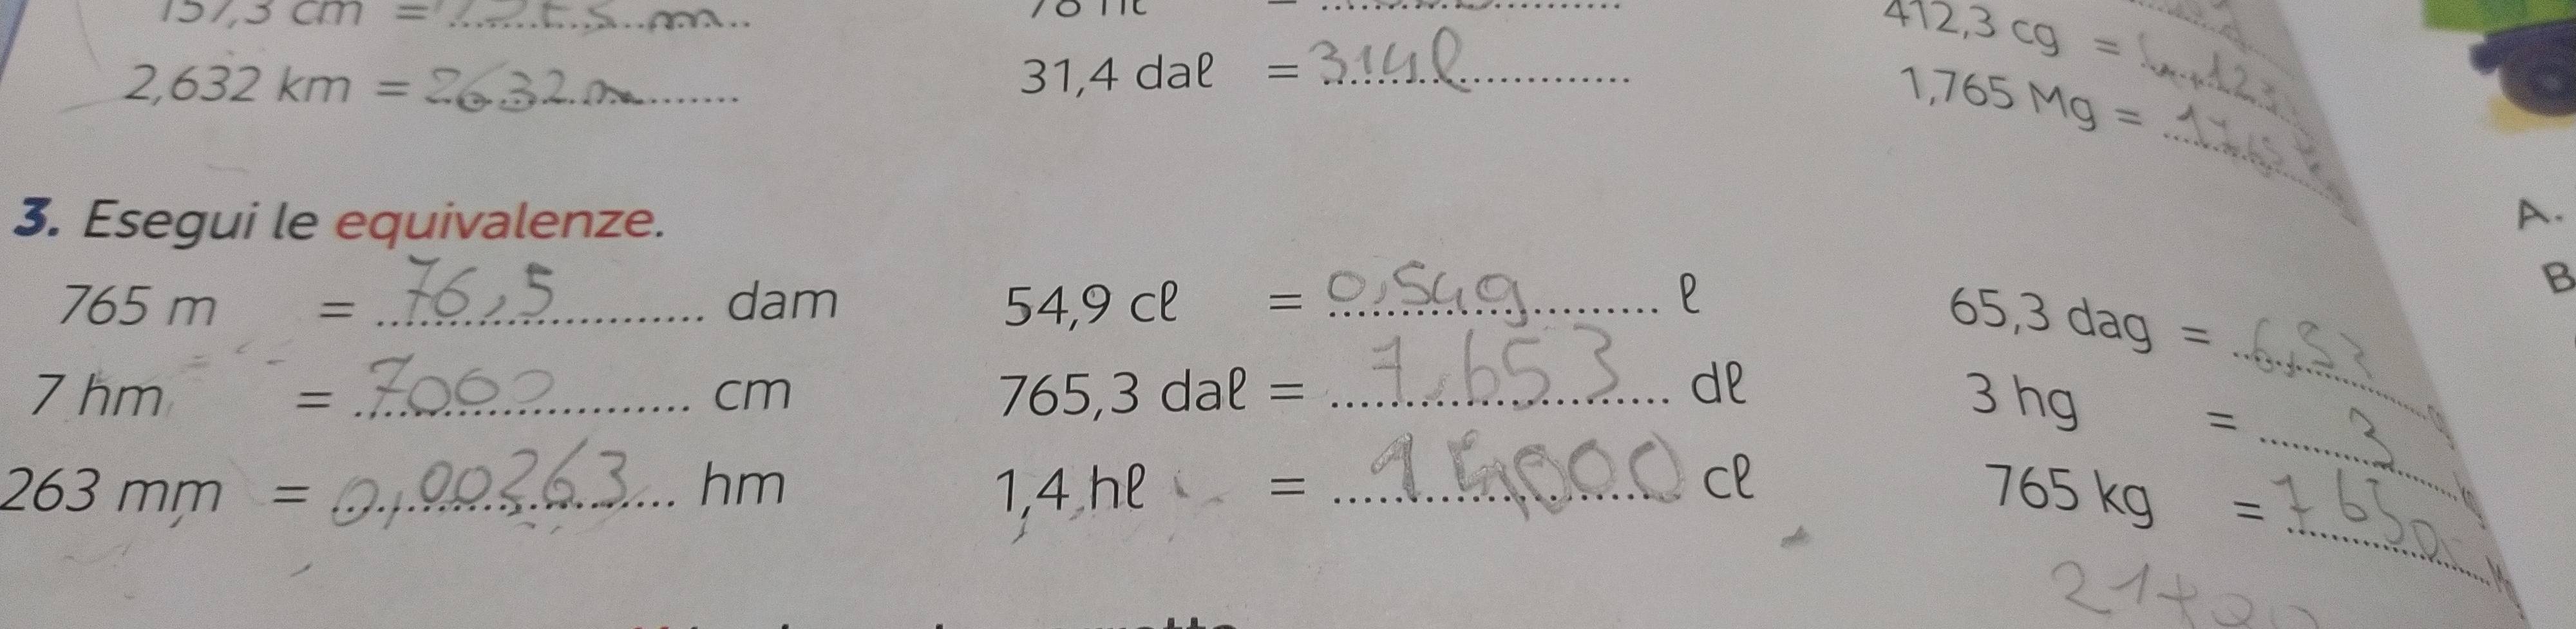 157,3 cm =
2,632 km = 2632 m
31,4 daℓ = 314 ℓ
412,3 cg =
1,765 Mg = 1765
3. Esegui le equivalenze.
765 m = 76,5 dam
7 hm = 7000 cm
263 mm = 0,00263 hm
54,9 cℓ = 0,549 ℓ
765,3 daℓ = 7,653 dℓ
1,4 hℓ = 14000 cℓ
65,3 dag = 6,53
3 hg = 3
765 kg = 7650
A.
B